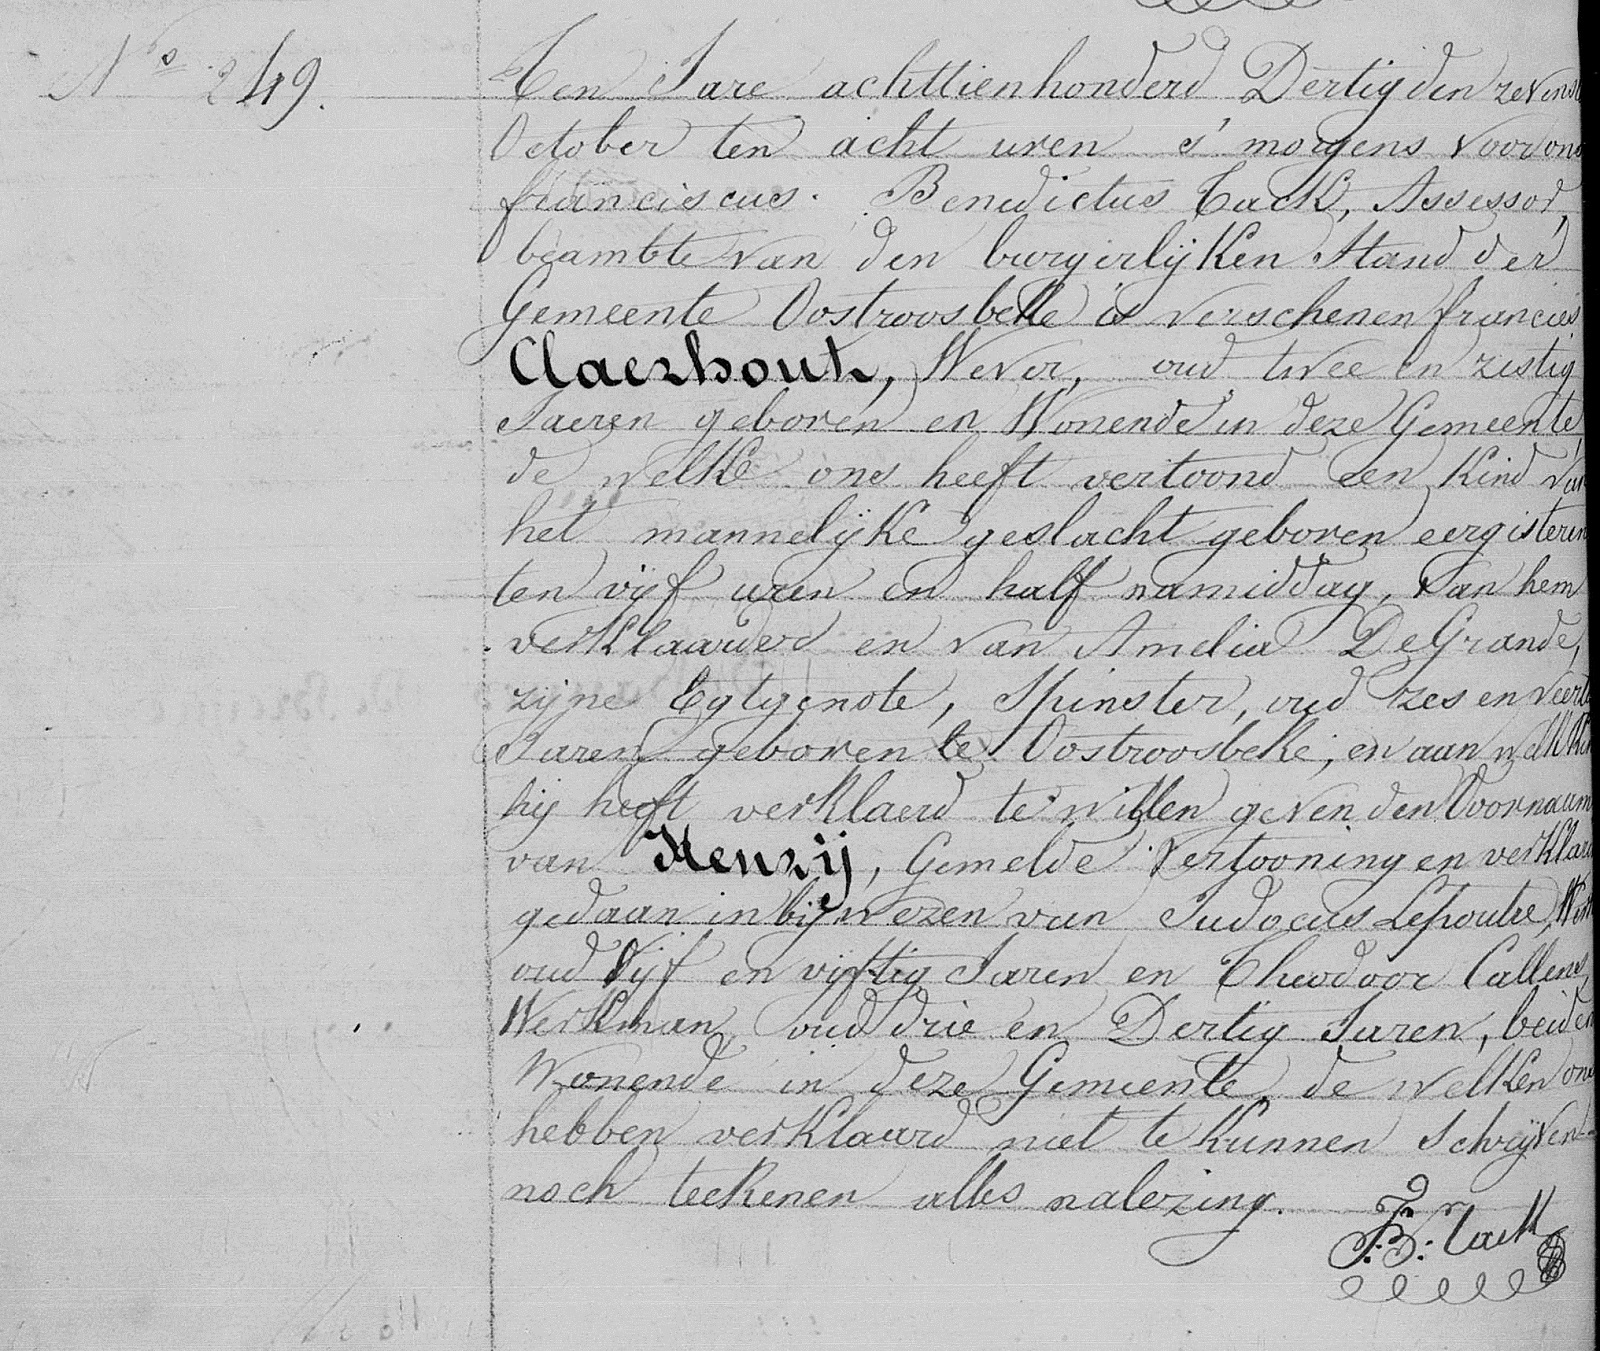 No 249.
Ten Jare achttienhonderd Dertig den zevenst
October ten acht uren s' morgens voor ons
franciscus. Benedictus Tack, Assessor,
beambte van den burgerlijken Stand der
Gemeente Oostroosbeke is verschenen francies
Claerhout, Wever, oud twee en zestig
Jaeren geboren en Wonende in deze Gemeente,
de welke ons heeft vertoond een Kind van
het mannelijke geslacht geboren eergisteren
ten vijf uren en half namiddag, van hem
verklaarder en van Amelia DeGrande,
zijne Egtgenote, Spinster, oud zes en veertig
Jaren geboren te Oostroosbeke, en aan welk Kin
hij heeft verklaerd te willen geven den Voornaam
van Henrij, Gemelde Vertooning en verklar
gedaan in bijwezen van Judocus Lepoutre,
oud Vijf en vijftig Jaren en Theodoor Callens,
Werkman, oud drie en Dertig Jaren, beiden
Wonende in deze Gemeente, de welken ons
hebben verklaard niet te Kunnen Schrijven
noch teekenen alles nalezing.
F. B. Tack